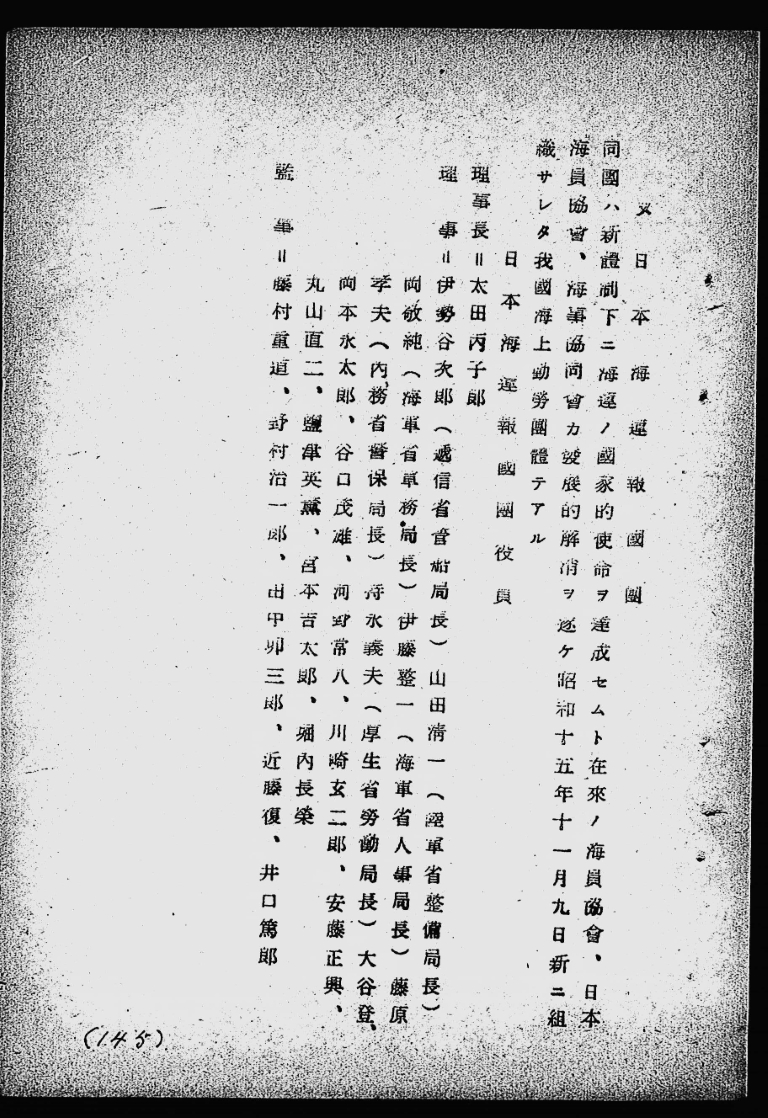 又 日本海運報國團
同國ハ新體制下ニ海運ノ國家的使命ヲ達成セムト在來ノ海員協會、日本
海員協會、海事協同會カ發展的解消ヲ逐ケ昭和十五年十一月九日新ニ組
織サレタ我國海上勤勞團體テアル
日本海運報國團役員
理事長＝太田丙子郎
理事＝伊勢谷次郎（遞信省管船局長）山田淸一（陸軍省整備局長）
岡敬純（海軍省軍務局長）伊藤整一（海軍省人事局長）藤原
孝夫（內務省警保局長）持永義夫（厚生省勞働局長）大谷登、
岡本永太郎、谷口茂雄、河野常八、川崎玄二郎、安藤正興、
丸山直二、鹽津英薰、宮本吉太郎、堀內長榮
監事＝藤村重道、野村治一郎、田中卯三郎、近藤復、井口篤郎
(145)